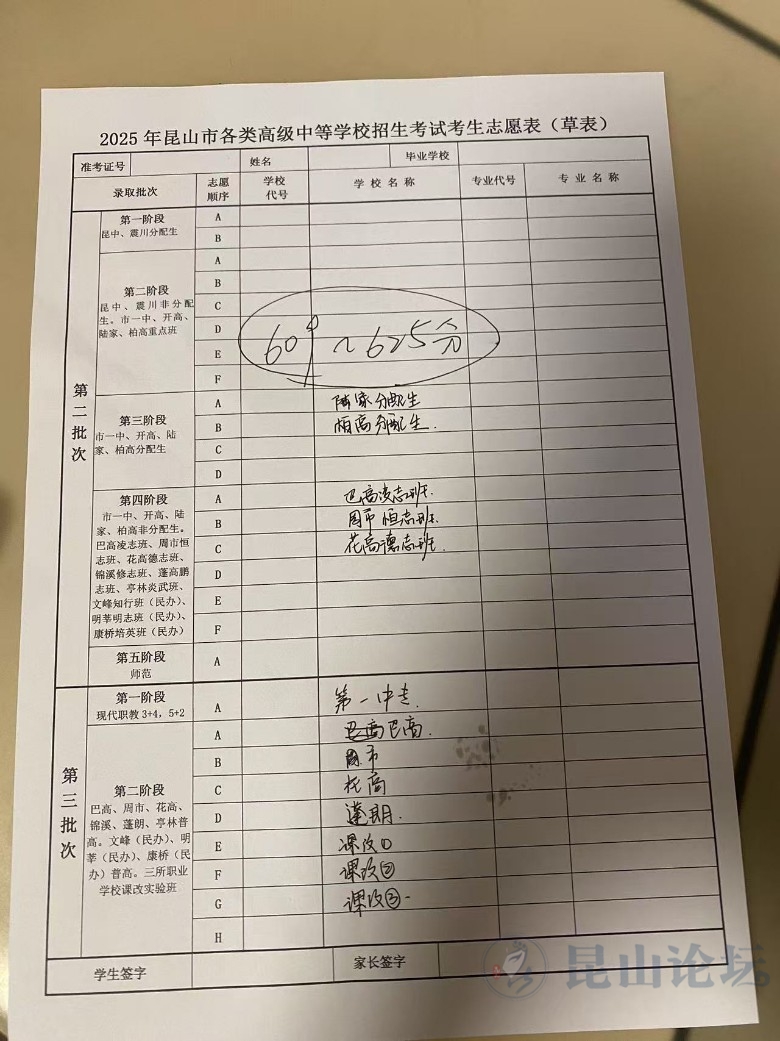 2025年昆山市各类高级中等学校招生考试考生志愿表（草表）
准考证号 姓名 毕业学校
录取批次 志愿顺序 学校代号 学校名称 专业代号 专业名称
第二批次
第一阶段
昆中、震川分配生
A
B
第二阶段
昆中、震川非分配
生。市一中、开高、
陆家、柏高重点班
A
B
C
D
E
F
~625分
第三阶段
市一中、开高、陆
家、柏高分配生
A 陆家分配生
B 柏高分配生.
C
D
第四阶段
市一中、开高、陆
家、柏高非分配生。
巴高凌志班、周市恒
志班、花高德志班、
锦溪修志班、蓬高鹏
志班、亭林炎武班、
文峰知行班（民办）、
明莘明志班（民办）、
康桥培英班（民办）
A 巴高凌志班.
B 周市恒志班.
C 花高德志班.
D
E
F
第五阶段
师范
A
第三批次
第一阶段
现代职教3+4，5+2
A 第一中专.
第二阶段
巴高、周市、花高、
锦溪、蓬朗、亭林普
高。文峰（民办）、明
莘（民办）、康桥（民
办）普高。三所职业
学校课改实验班
A 巴高.
B 周市
C 花高
D 蓬朗.
E 课改①
F 课改②
G 课改③
H
学生签字 家长签字
昆山论坛